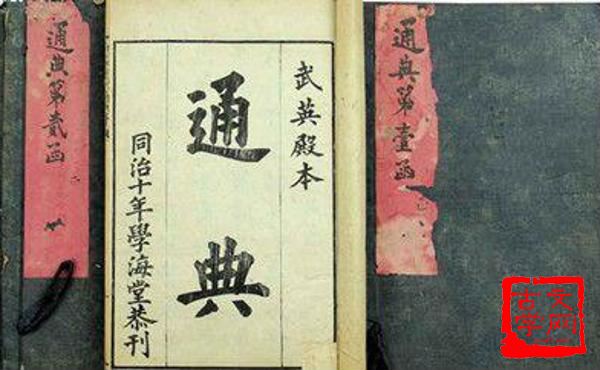 通典第壹函
武英殿本
通典
同治十年學海堂恭刊
通典第貳函